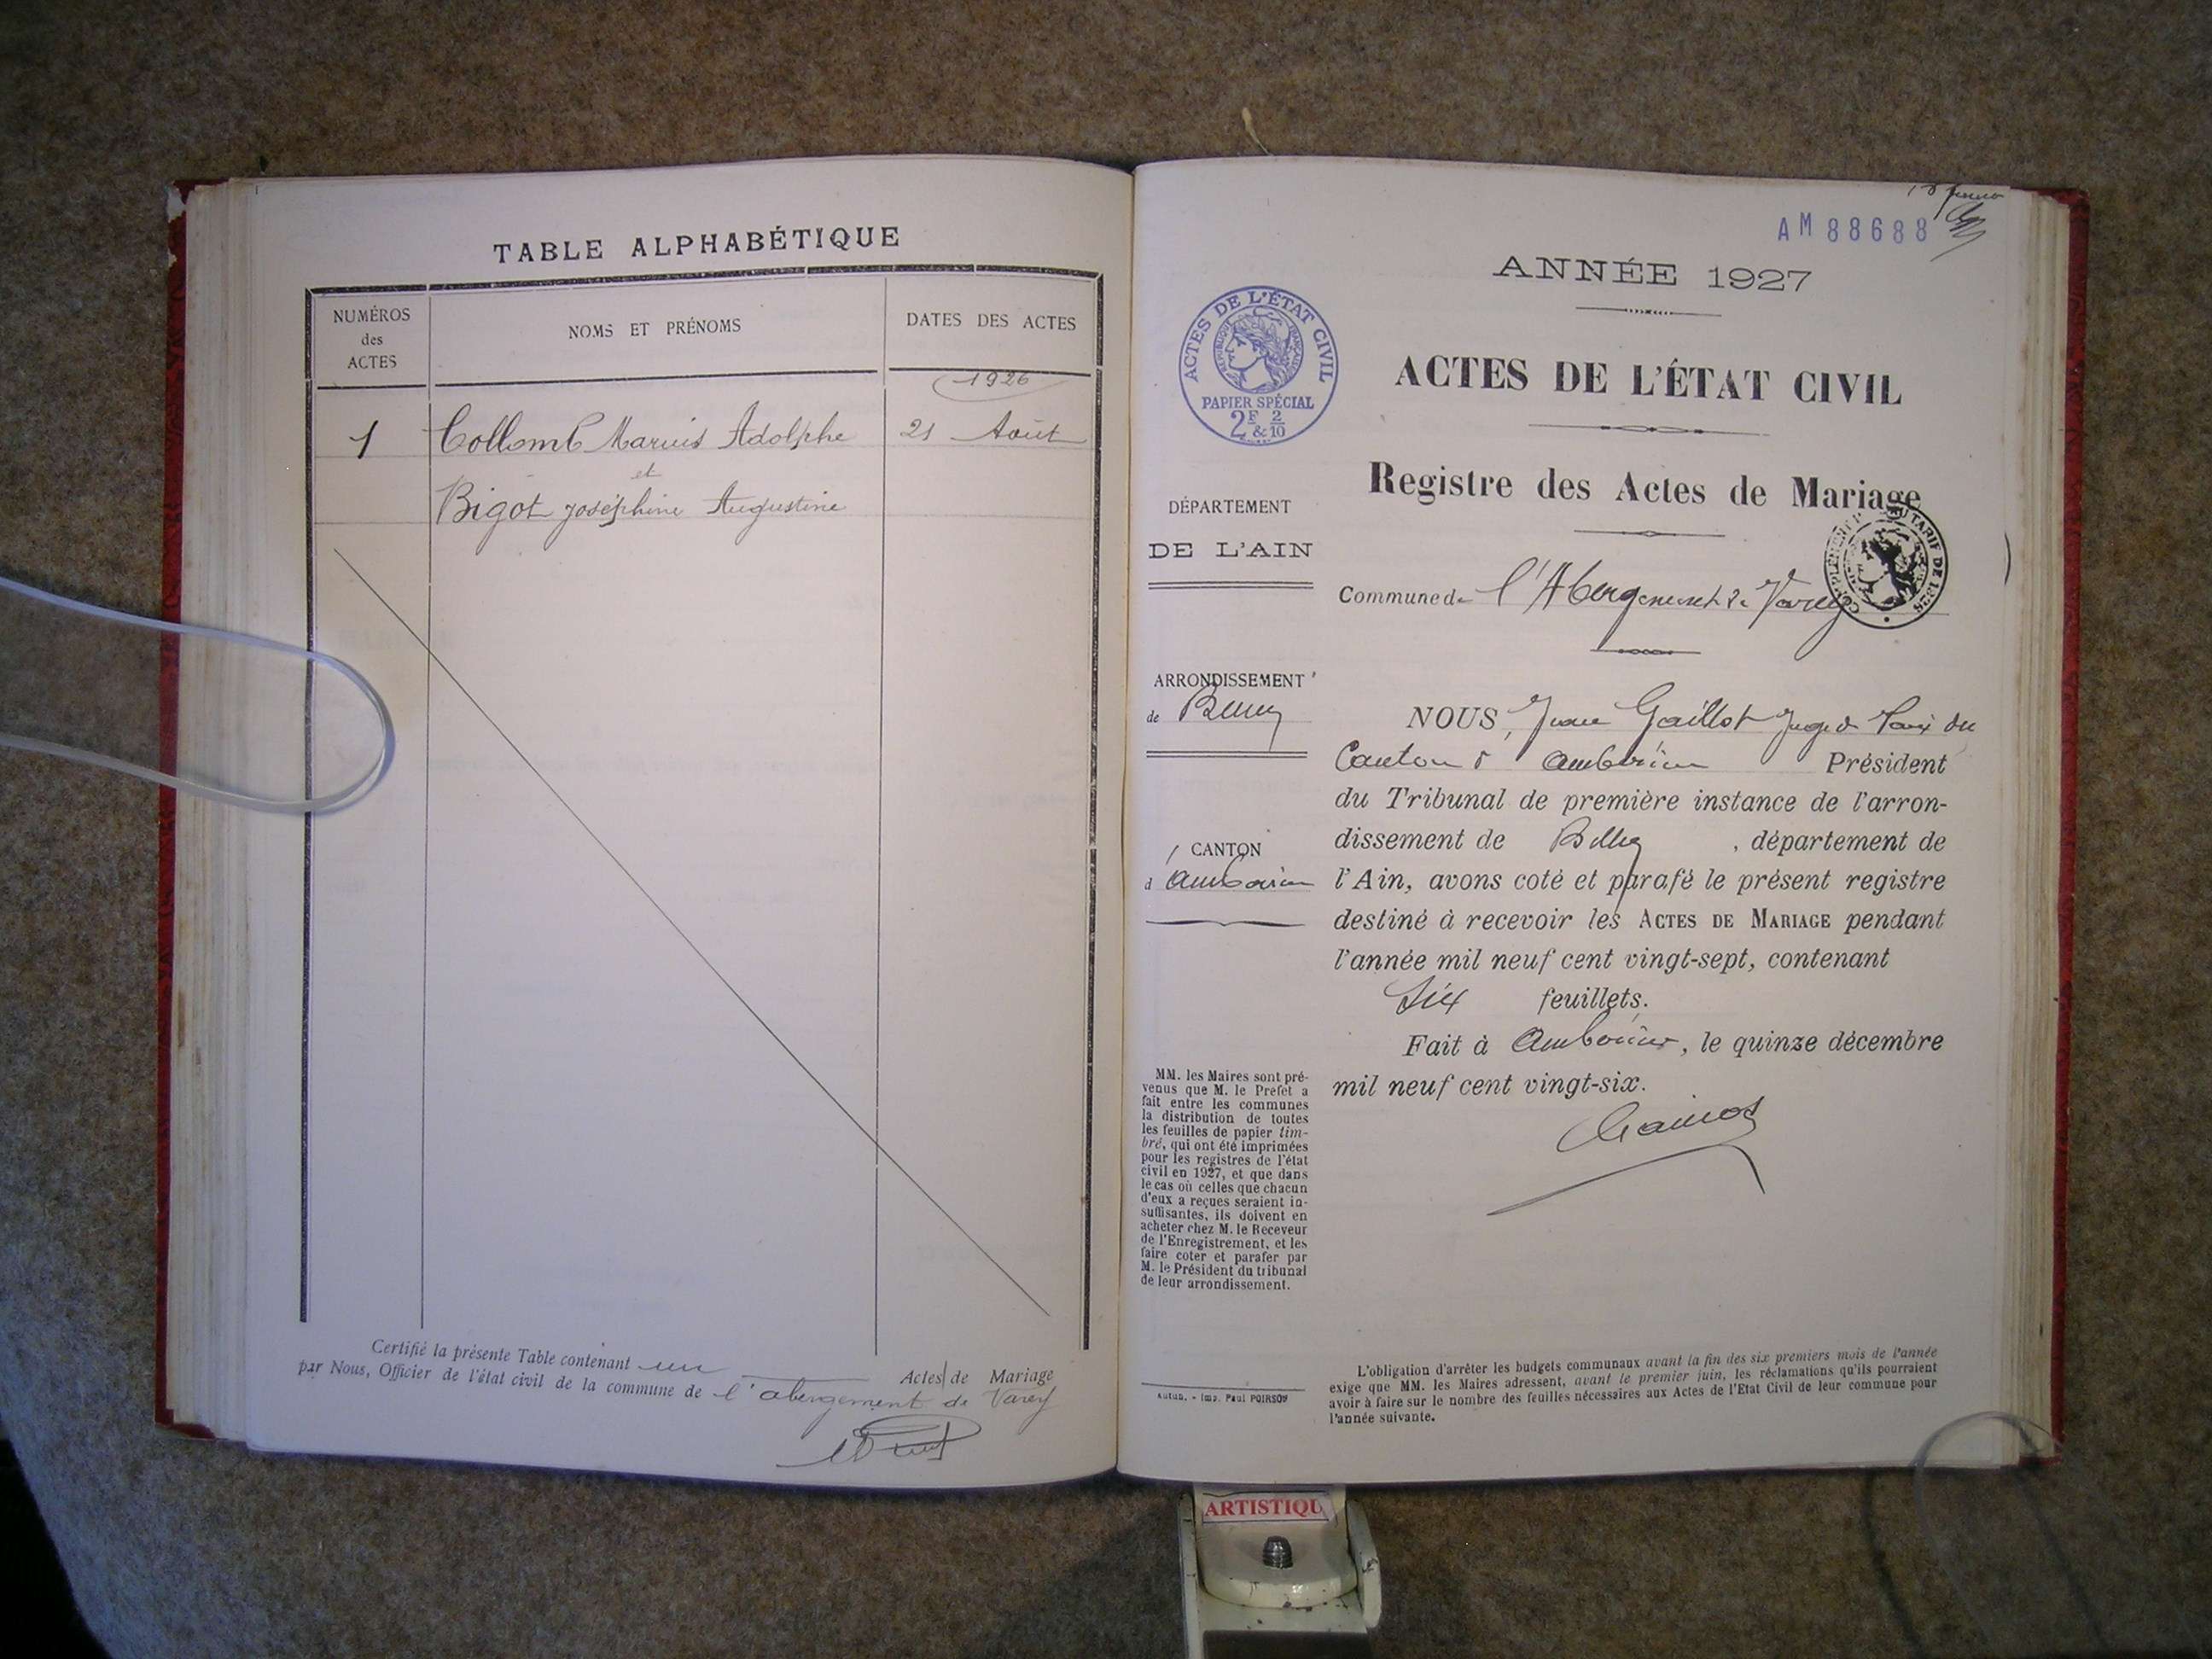 TABLE ALPHABÉTIQUE
NUMÉROS
des
ACTES
NOMS ET PRÉNOMS
DATES DES ACTES
1926
1 Collomb Marius Adolphe 21 Août
et
Bigot Joséphine Augustine
Certifié la présente Table contenant un Actes de Mariage
par Nous, Officier de l'état civil de la commune de l'abergement de Varey
AM 88688
ANNÉE 1927
ACTES DE L'ÉTAT CIVIL
RÉPUBLIQUE FRANÇAISE
PAPIER SPÉCIAL
2F & 2/10
ACTES DE L'ÉTAT CIVIL
Registre des Actes de Mariage
DÉPARTEMENT
DE L'AIN
Commune de l'Abergement de Varey
ARRONDISSEMENT
de Belley
CANTON
d'Ambérieu
NOUS, Gaillot Juge de Paix du
Canton d'Ambérieu Président
du Tribunal de première instance de l'arron-
dissement de Belley, département de
l'Ain, avons coté et parafé le présent registre
destiné à recevoir les ACTES DE MARIAGE pendant
l'année mil neuf cent vingt-sept, contenant
six feuillets.
Fait à Ambérieu, le quinze décembre
mil neuf cent vingt-six.
MM. les Maires sont pré-
venus que M. le Préfet a
fait entre les communes
la distribution de toutes
les feuilles de papier tim-
bré, qui ont été imprimées
pour les registres de l'état
civil en 1927, et que dans
le cas où celles que chacun
d'eux a reçues seraient in-
suffisantes, ils doivent en
acheter chez M. le Receveur
de l'Enregistrement, et les
faire coter et parafer par
M. le Président du tribunal
de leur arrondissement.
Autun. - Imp. Paul POIRSON
L'obligation d'arrêter les budgets communaux avant la fin des six premiers mois de l'année
exige que MM. les Maires adressent, avant le premier juin, les réclamations qu'ils pourraient
avoir à faire sur le nombre des feuilles nécessaires aux Actes de l'Etat Civil de leur commune pour
l'année suivante.
ARTISTIQU